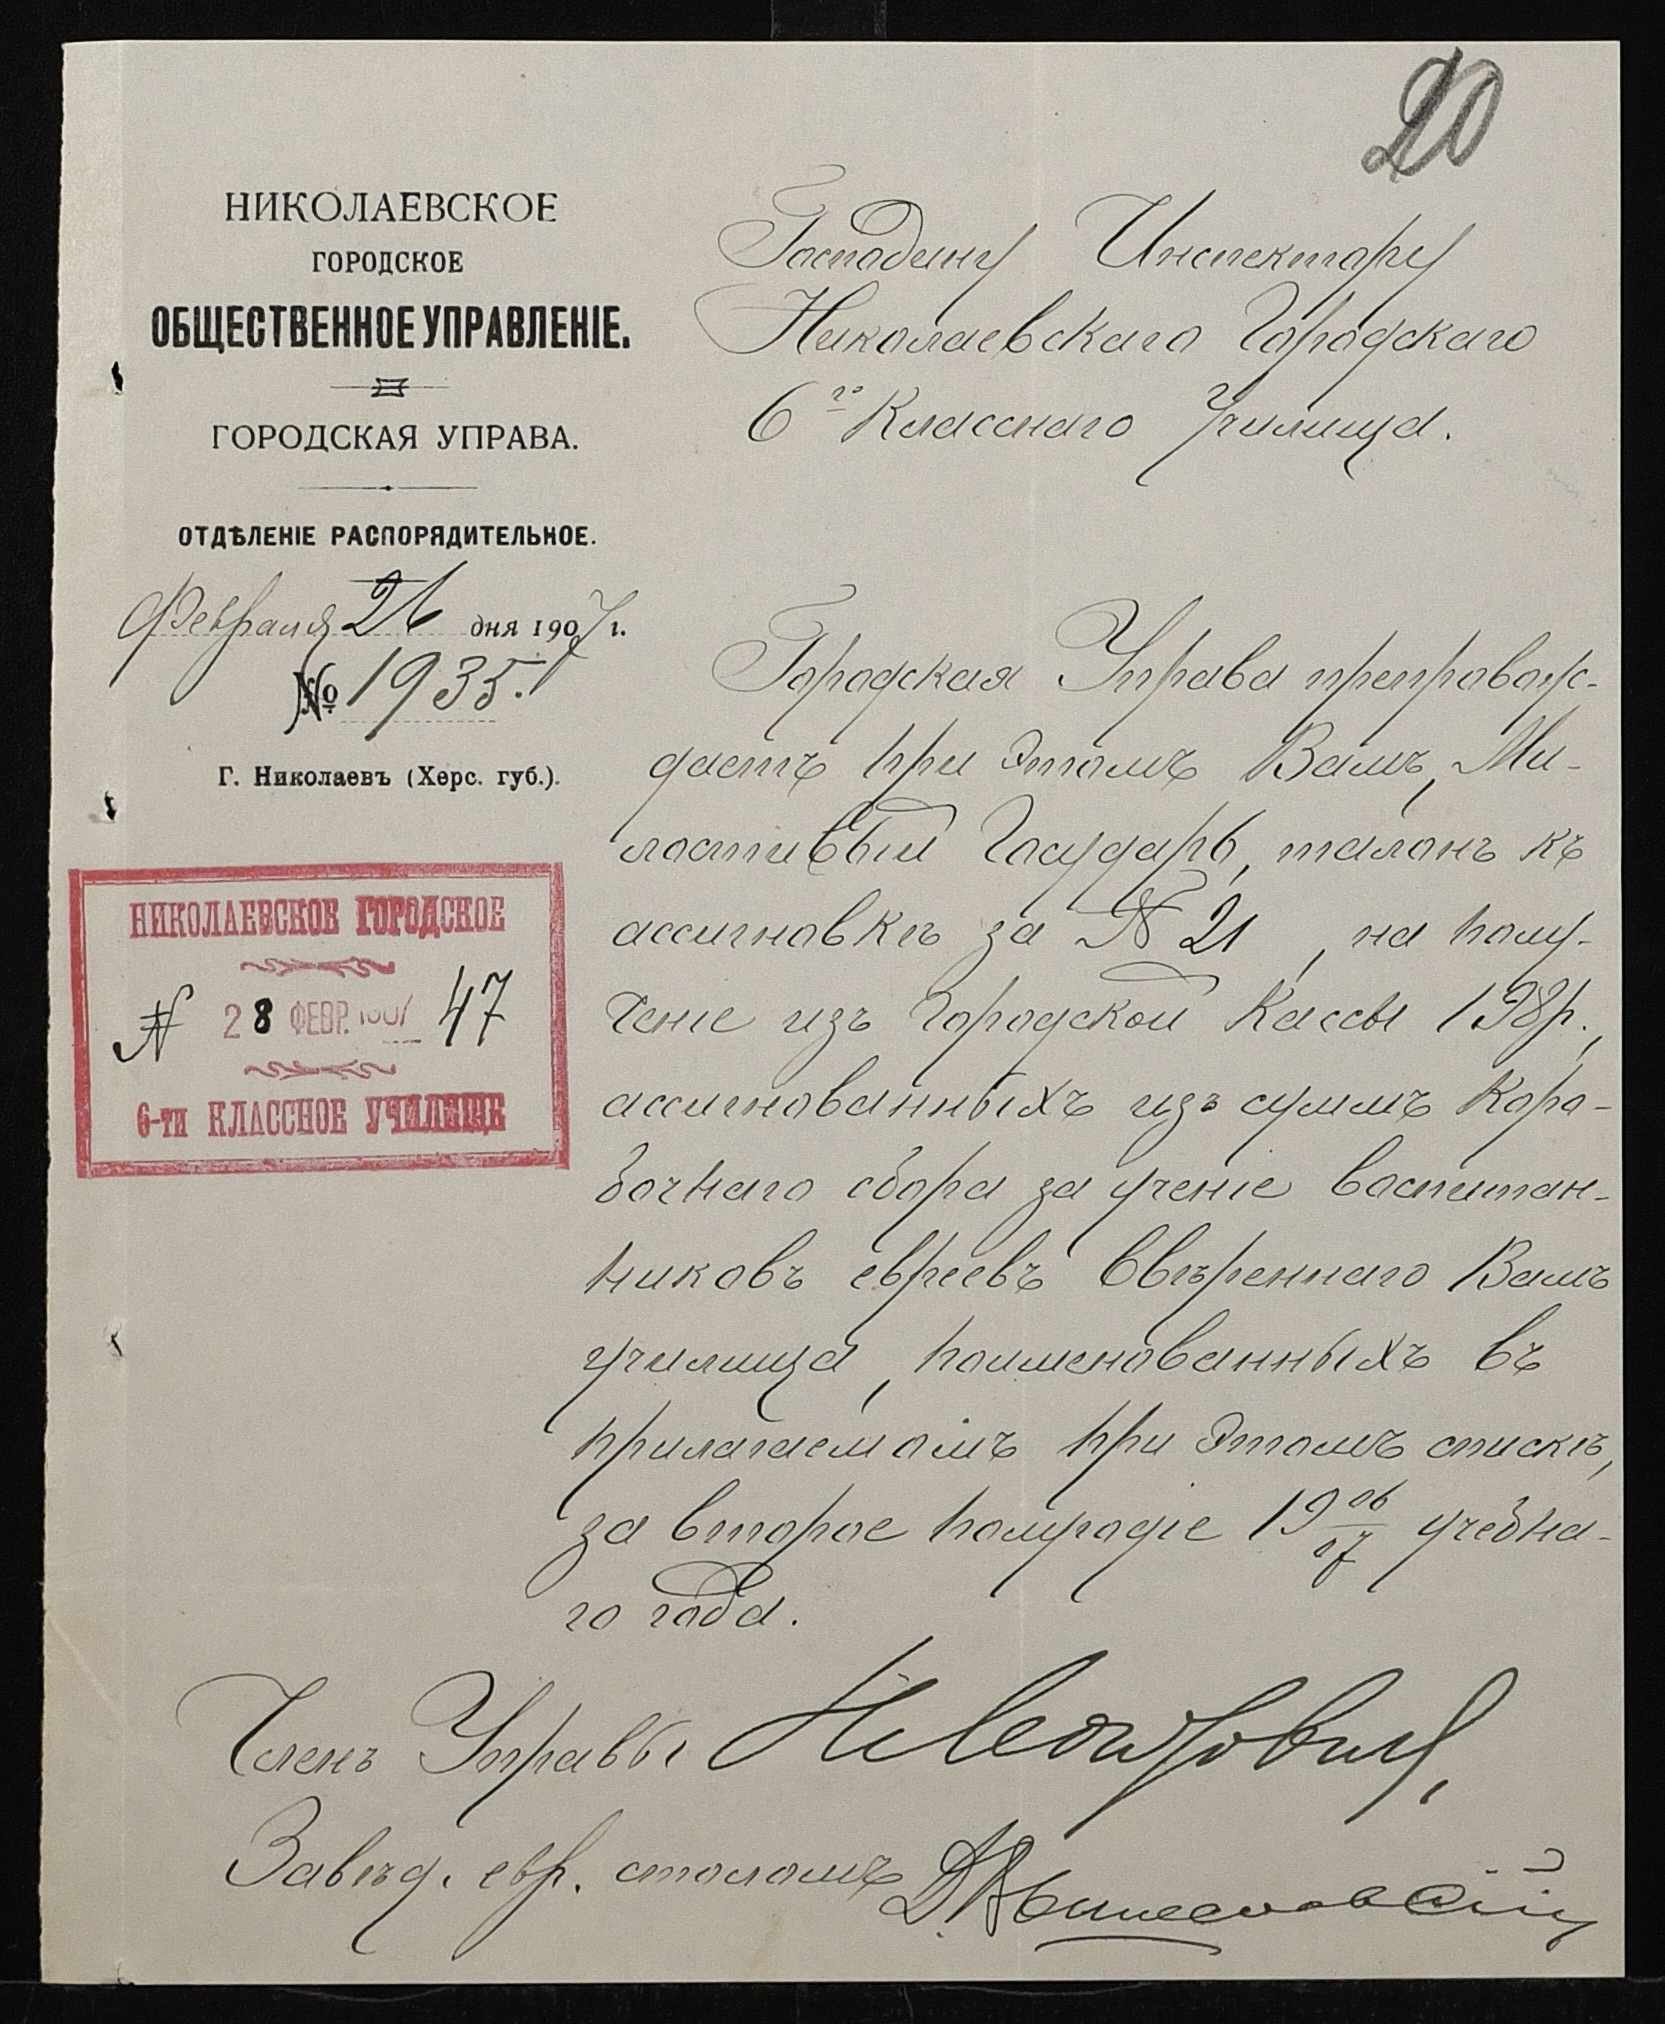 20
НИКОЛАЕВСКОЕ
ГОРОДСКОЕ
ОБЩЕСТВЕННОЕ УПРАВЛЕНІЕ.
ГОРОДСКАЯ УПРАВА.
ОТДѢЛЕНІЕ РАСПОРЯДИТЕЛЬНОЕ.
Февраля 26 дня 1907 г.
№ 1935.
Г. Николаевъ (Херс. губ.).
НИКОЛАЕВСКОЕ ГОРОДСКОЕ
№ 28 ФЕВР. 1907 47
6-ти КЛАССНОЕ УЧИЛИЩЕ
Господину Инспектору
Николаевскаго Городскаго
6го Класснаго Училища.
Городская Управа препровож-
даетъ при этомъ Вамъ, Ми-
лостивый Государь, талонъ къ
ассигновкѣ за № 21, на полу-
ченіе изъ Городской Кассы 198 р.,
ассигнованныхъ изъ суммъ Коро-
бочнаго сбора за ученіе воспитан-
никовъ евреевъ ввѣреннаго Вамъ
училища, поименованныхъ въ
прилагаемомъ при этомъ спискѣ,
за второе полугодіе 1906/07 учебна-
го года.
Членъ Управы
Завѣд. евр. столомъ